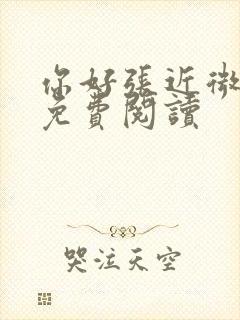 你好張近微
免費閱讀
哭泣天空